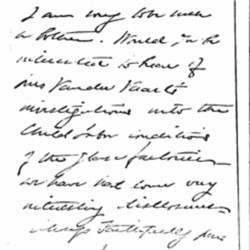 I am sorry to be such
a bother. Would you be
interested to hear of
Miss Vander Vaart's
investigations into the
Child labor conditions
of the glass factories
we have had some very
interesting disclosures
Always Faithfully yours